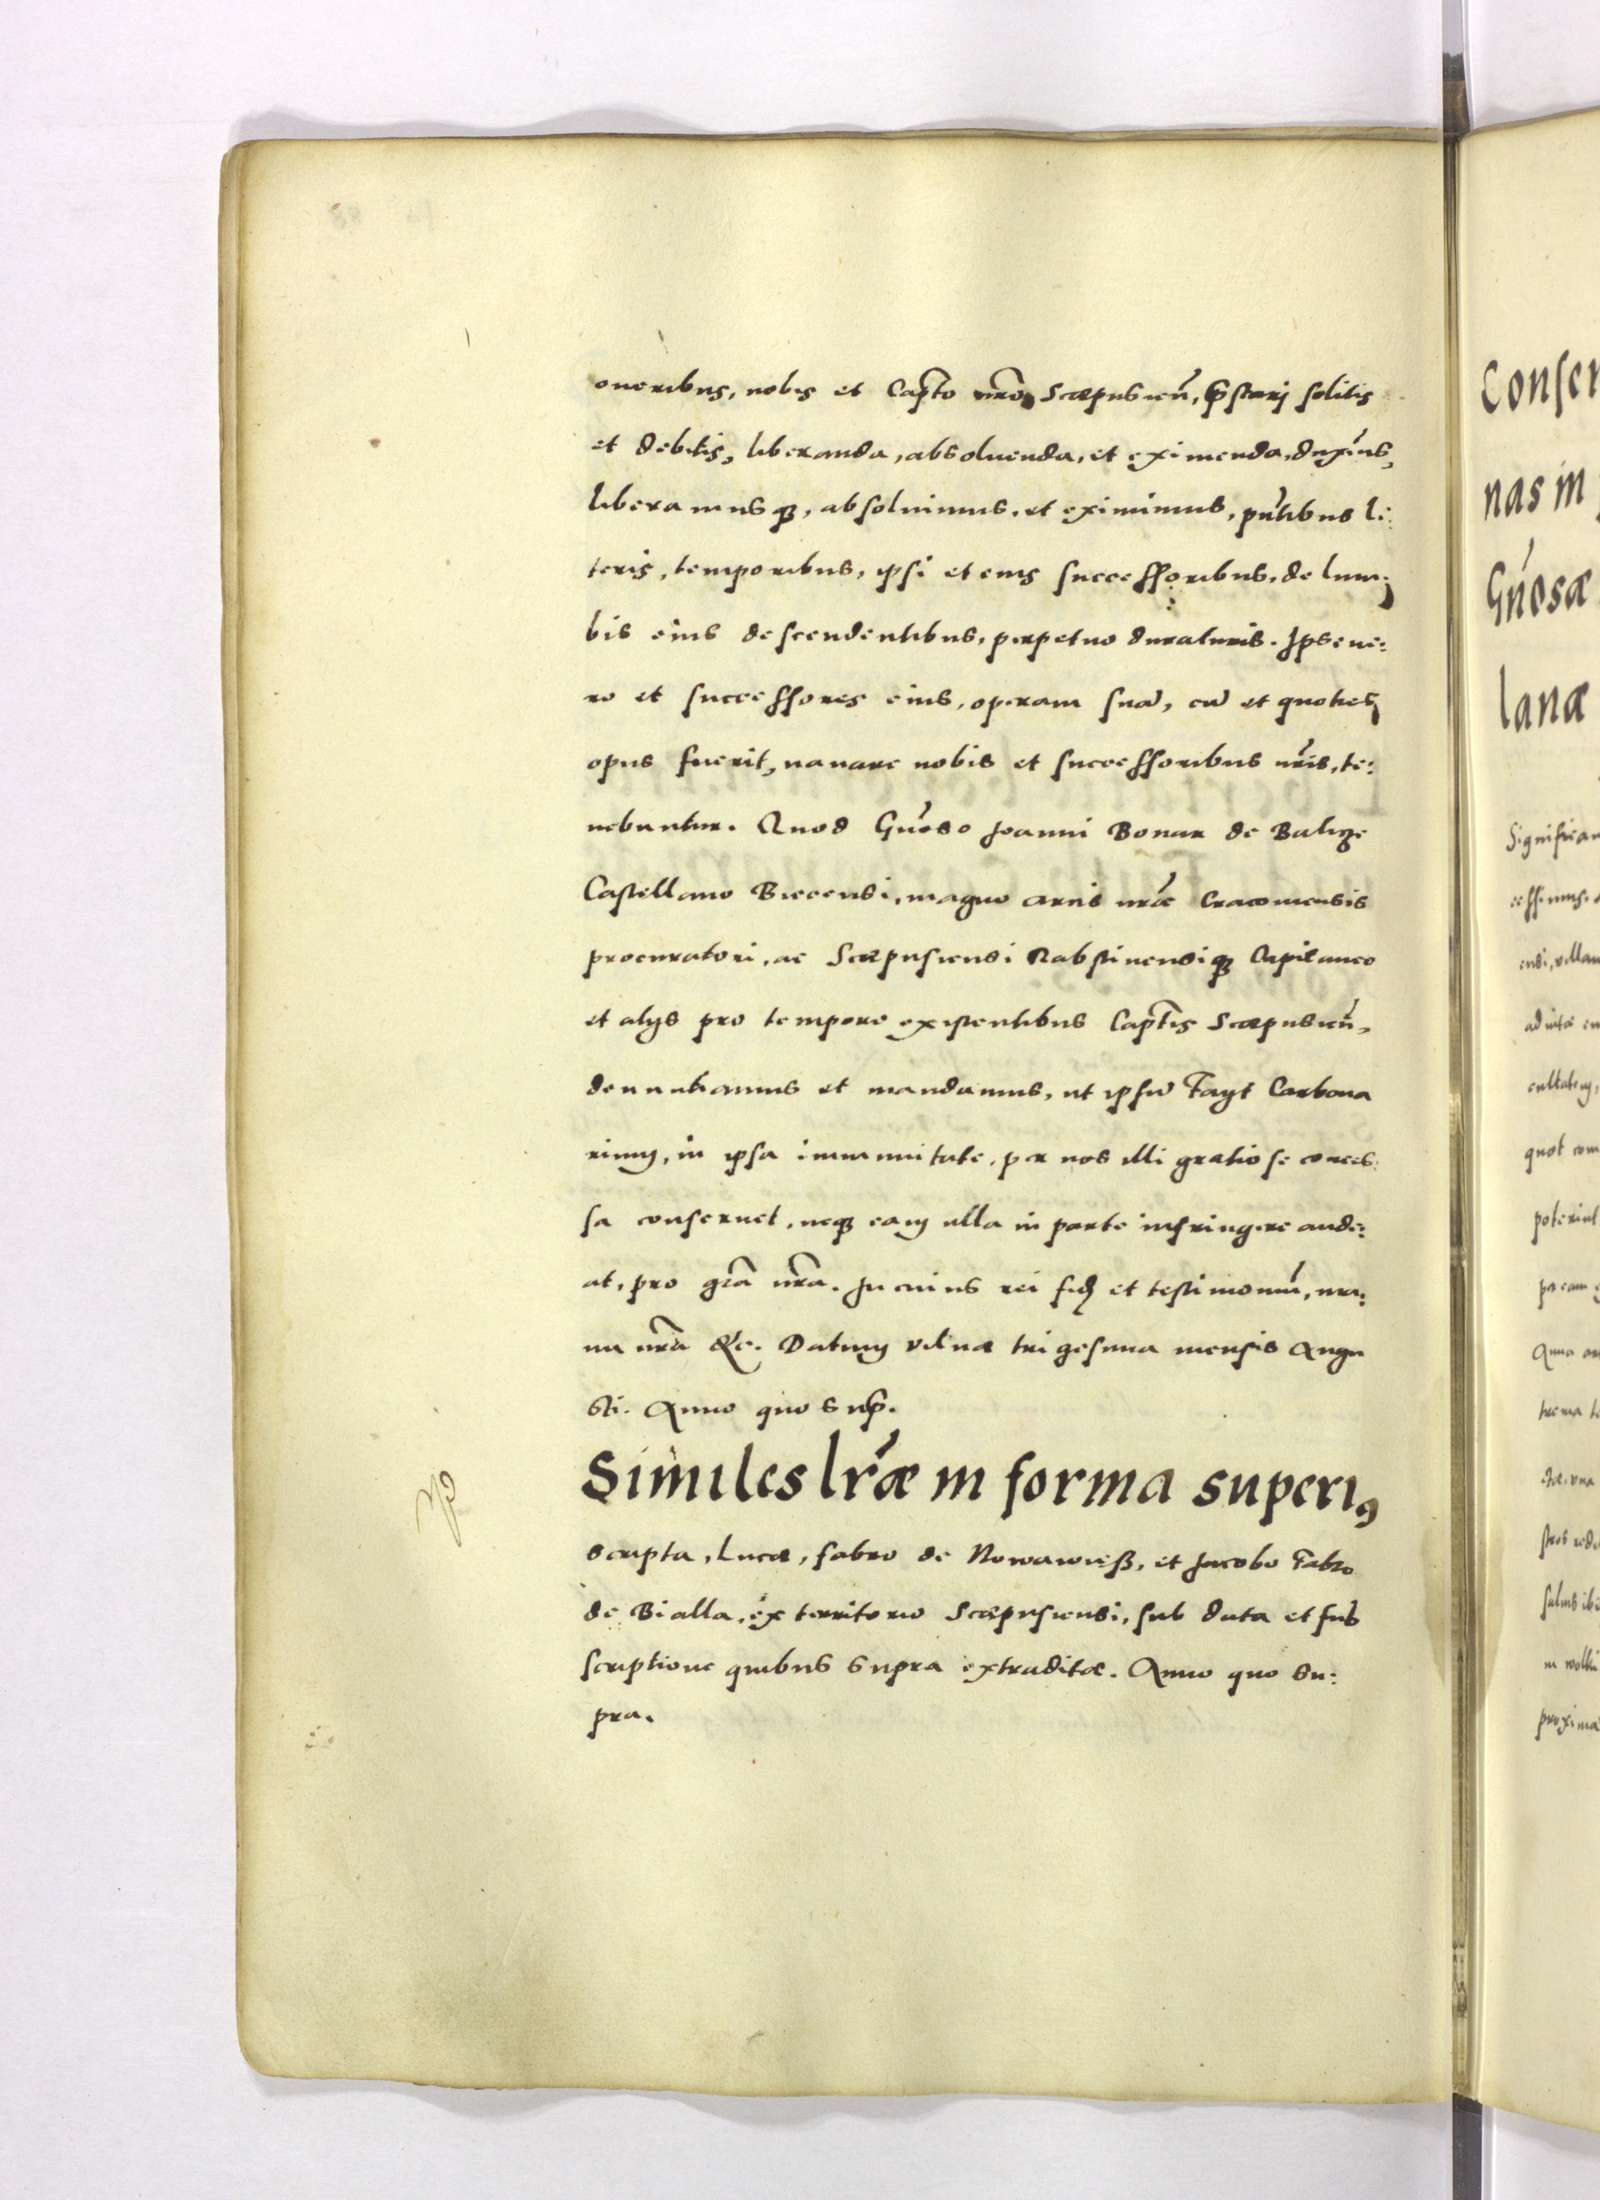 oneribus, nobis et Capto nro Scaepusień, pstarj solitis
et debitis, liberanda, absoluenda, et eximenda, duximus,
liberamusq3, absoluimus, et eximimus, pńtibus li:
teris, temporibus, ipsi et eius successoribus, de lum:
bis eius descendentibus, perpetuo duraturis. Ipse ue:
ro et successores eius, operam suā, cū et quoties
opus fuerit, nauare nobis et successoribus nris, te:
nebuntur. Quod Gńoso Joanni Bonar de Balicze
Castellano Biecensi, magno arcis nrae Cracouiensis
procuratori, ac Scaepusiensi Rabstinensiq3 Capitaneo
et alijs pro tempore existentibus Captis Scaepusień,
denuntiamus et mandamus, ut ipsū Fayt Carbona
rium, in ipsa immunitate, per nos illi gratiose conces:
sa conseruet, neq3 eam ulla in parte infringere aude:
at, pro gra nra. In cuius rei fidē et testimoniū, ma:
nu nra &c. Datum Vilnae trigesima mensis Augu
sti. Anno quo sup.
Similes lrae in forma superi9
scripta, Lucae, fabro de Nowawieß, et Jacobo Fabro
de Bialla, ex territorio Scaepusiensi, sub data et sub
scriptione quibus supra extraditae. Anno quo su:
pra.
Conser
nas in
Gńosae
lanae
Significam
cessimus,
ensi, villam
ad uitae
cultatem,
quot com
poterint
per eam
Anna
trema
proxima